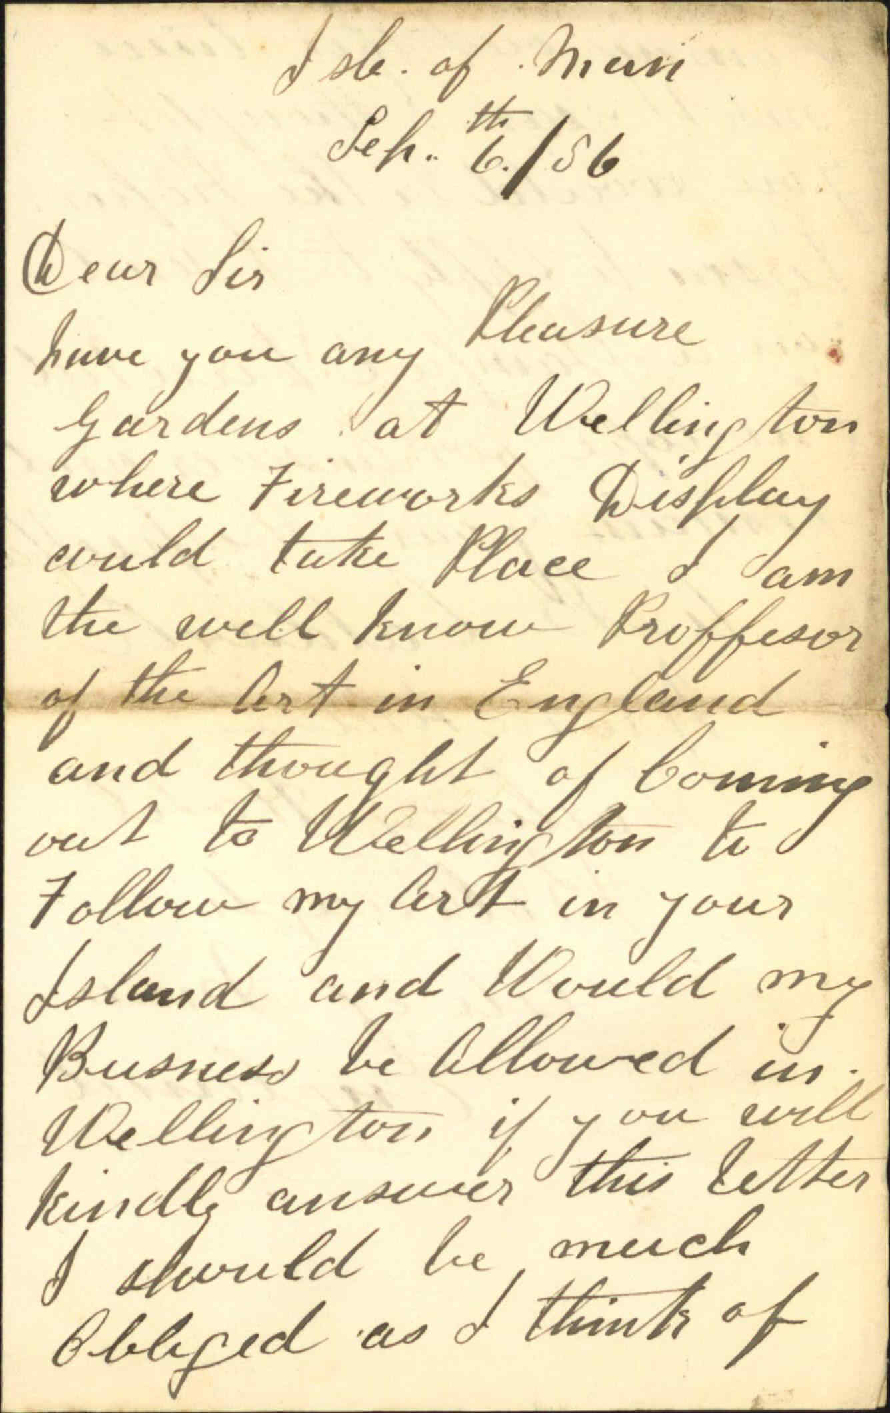 Isle. of Man
Sep. 6.th/86
Dear Sir
have you any Pleasure
Gardens at Wellington
where Fireworks Display
could take Place I am
the well know Proffesor
of the Art in England
and thought of Coming
out to Wellington to
Follow my Art in your
Island and Would my
Busness be Allowed in.
Wellington if you will
kindly answer this letter
I should be much
Obliged as I think of